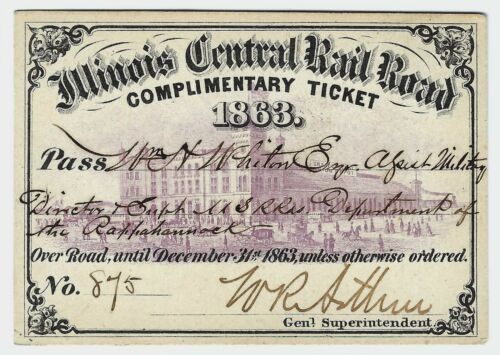 Illinois Central Rail Road
COMPLIMENTARY TICKET
1863.
Pass Wm H Whiton Esq Assist Military
Director & Supt U S R Rds. Department of
the Rappahannock
Over Road, until December 31st 1863, unless otherwise ordered.
No. 875 W R Arthur
Genl Superintendent.